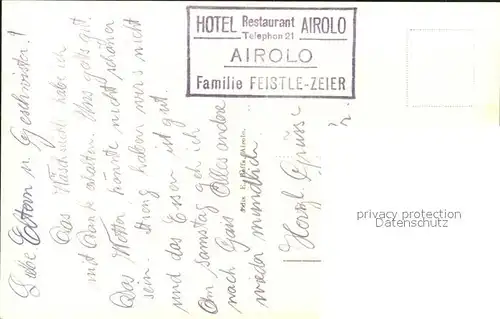 HOTEL Restaurant AIROLO
Telephon 21
AIROLO
Familie FEISTLE-ZEIER
Liebe Eltern u. Geschwister!
Das Wäschesäckli habe ich
mit Dank erhalten. Uns geht's gut.
Das Wetter könnte nicht schöner
sein. Streng haben wir's nicht
und das Essen ist gut.
Am Samstag geh ich
nach Gais Alles andere
wieder mündlich.
Herzl. Grüsse
privacy protection
Watermark